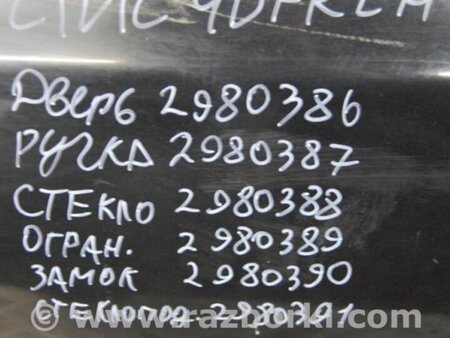 CIVIC 4D FR LH
Дверь 2980386
РУЧКА 2980387
СТЕКЛО 2980388
ОГРАН. 2980389
ЗАМОК 2980390
СТЕКЛОПОД. 2980391
© www.razborki.com